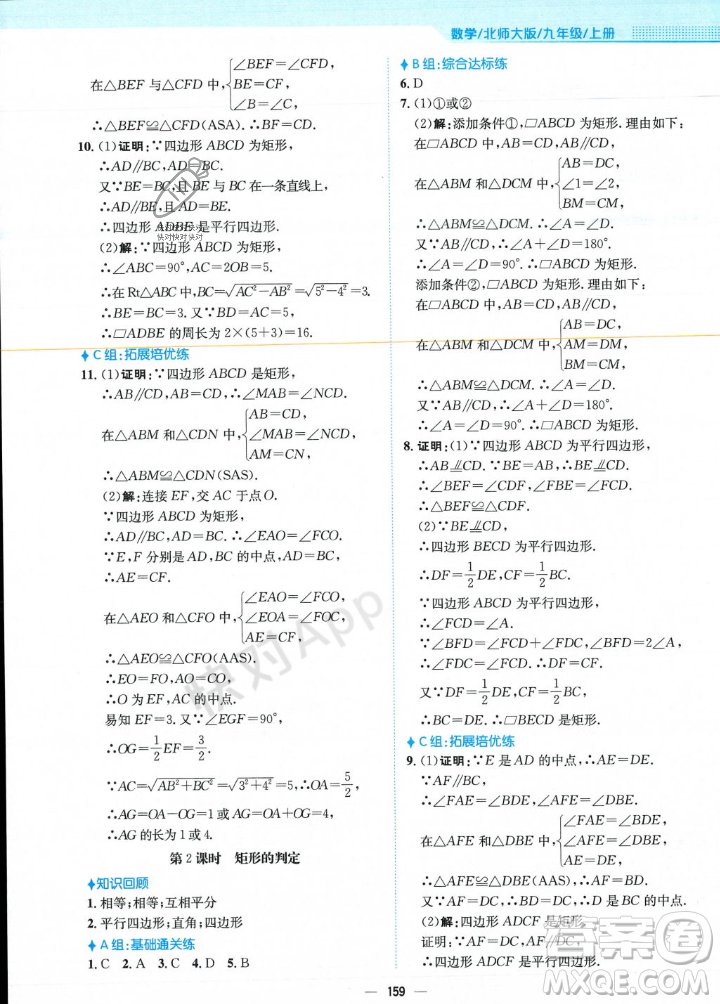 数学/北师大版/九年级/上册
∠BEF=∠CFD,
在△BEF与△CFD中{BE=CF,
∠B=∠C,
∴△BEF≌△CFD(ASA).
10. (1)证明:∵四边形ABCD为矩形,
∴AD∥BC,AD=BC.
又∵BE=BC,且BE与BC在一条直线上,
∴AD∥BE,且AD=BE.
∴四边形ADBE是平行四边形.
(2)解:∵四边形ABCD为矩形,
∴∠ABC=90°,AC=2OB=5.
∴在Rt△ABC中,BC=√(AC²−AB²)=√(5²−4²)=3.
∴BE=BC=3.又∵BD=AC=5,
∴□ADBE的周长为2×(5+3)=16.
C组:拓展培优练
11. (1)证明:∵四边形ABCD是矩形,
∴AB∥CD,AB=CD,∴∠MAB=∠NCD.
在△ABM和△CDN中,{AB=CD,
∠MAB=∠NCD,
AM=CN,
∴△ABM≌△CDN(SAS).
(2)解:连接EF,交AC于点O.
∵四边形ABCD为矩形,
∴AD∥BC,AD=BC,∴∠EAO=∠FCO.
∵E,F分别是AD,BC的中点,
∴AE=CF.
在△AEO和△CFO中,{∠EAO=∠FCO,
∠EOA=∠FOC,
AE=CF,
∴△AEO≌△CFO(AAS).
∴EO=FO,AO=CO,
∴O为EF,AC的中点.
易知EF=3.又∵∠EGF=90°,
∴OG=1/2EF=3/2.
∵AC=√(AB²+BC²)=√(3²+4²)=5,∴OA=5/2.
∴AG=OA−OG=1或AG=OA+OG=4.
∴AG的长为1或4.
第2课时 矩形的判定
知识回顾
1. 相等;相等;互相平分
2. 平行四边形;直角;四边形
A组:基础通关练
1. C 2. A 3. C 4. D 5. B
B组:综合达标练
6. D
7. (1)①或②
(2)解:添加条件①,□ABCD为矩形.理由如下:
在□ABCD中,AB=CD,AB∥CD.
在△ABM和△DCM中,{AB=DC,
∠1=∠2,
BM=CM,
∴△ABM≌△DCM,∴∠A=∠D.
又∵AB∥CD,∴∠A+∠D=180°.
∴∠A=∠D=90°.∴□ABCD为矩形.
添加条件②,□ABCD为矩形.理由如下:
在□ABCD中,AB=CD,AB∥CD.
在△ABM和△DCM中,{AB=DC,
AM=DM,
BM=CM,
∴△ABM≌△DCM,∴∠A=∠D.
又∵AB∥CD,∴∠A+∠D=180°.
∴∠A=∠D=90°.∴□ABCD为矩形.
8. 证明:(1)∵四边形ABCD为平行四边形,
∴AB⫫CD.又∵BE=AB,∴BE⫫CD.
∴∠BEF=∠CDF,∠EBF=∠DCF,
∴△BEF≌△CDF.
(2)∵BE⫫CD,
∴四边形BECD为平行四边形.
∴DF=1/2DE,CF=1/2BC.
∵四边形ABCD为平行四边形,
∴∠FCD=∠A.
又∵∠BFD=∠FCD+∠FDC,∠BFD=2∠A,
∴∠FDC=∠FCD.∴DF=CF.
又∵DF=1/2DE,CF=1/2BC,
∴BC=DE.∴□BECD是矩形.
C组:拓展培优练
9. (1)证明:∵E是AD的中点,∴AE=DE.
∵AF∥BC,
∴∠FAE=∠BDE,∠AFE=∠DBE.
在△AFE和△DBE中,{∠FAE=∠BDE,
∠AFE=∠DBE,
AE=DE,
∴△AFE≌△DBE(AAS).∴AF=DB.
又∵AF=DC,∴DB=DC.∴D是BC的中点.
(2)解:四边形ADCF是矩形.
证明:∵AF=DC,AF∥DC,
∴四边形ADCF是平行四边形.
159
快对App
快对快对快对
答案圈
MXQE.COM